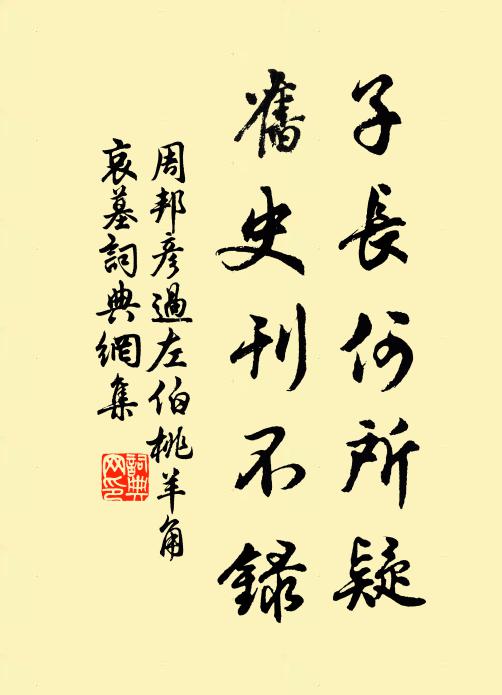 子長何所疑
舊史刊不錄
周邦彦過左伯桃羊角
哀墓詞典網集
詞典
网印